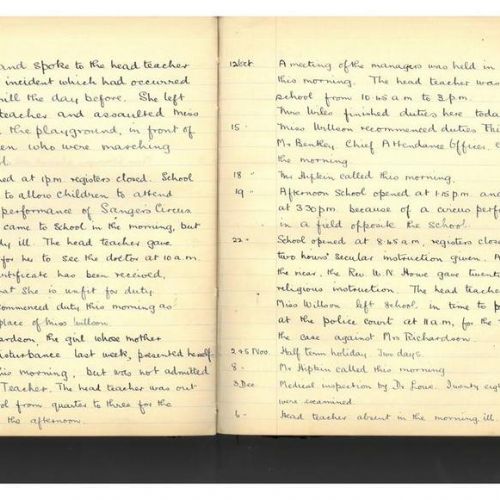 and spoke to the head teacher
incident which had occurred
mill the day before. She left
teacher and assaulted Miss
the playground, in front of
who were marching
at 1p.m. registers closed. School
to allow children to attend
performance of Sanger's Circus
came to School in the morning, but
ill. The head teacher gave
for her to see the doctor at 10 a.m.
certificate has been received,
that she is unfit for duty
commenced duty this morning as
place of Miss Willson.
the girl whose mother
disturbance last week, presented herself
this morning, but was not admitted
Teacher. The head teacher was out
from quarter to three for the
the afternoon.
12 Oct. A meeting of the managers was held in
this morning. The head teacher was
school from 10.45 a.m. to 3 p.m.
Miss Wiles finished duties here today
15 - Miss Willson recommenced duties
Mr Benkey, Chief Attendance Officer,
the morning.
18 " Mr Hipkin called this morning.
19 - Afternoon School opened at 1.15 p.m. and
at 3.30 p.m. because of a circus
in a field opposite the School.
22 - School opened at 8.45 a.m, registers
two hours' secular instruction given.
the Rev. W. N. Howe gave
religious instruction. The head
Miss Willson left School, in time to
at the police court at 11 a.m, for the
the case against Mrs Richardson.
2 + 5 Nov. Half term holiday. Two days.
8 - Mr Hipkin called this morning
3 Dec Medical inspection by Dr Lowe. Twenty
were examined.
6 - Head teacher absent in the morning, ill